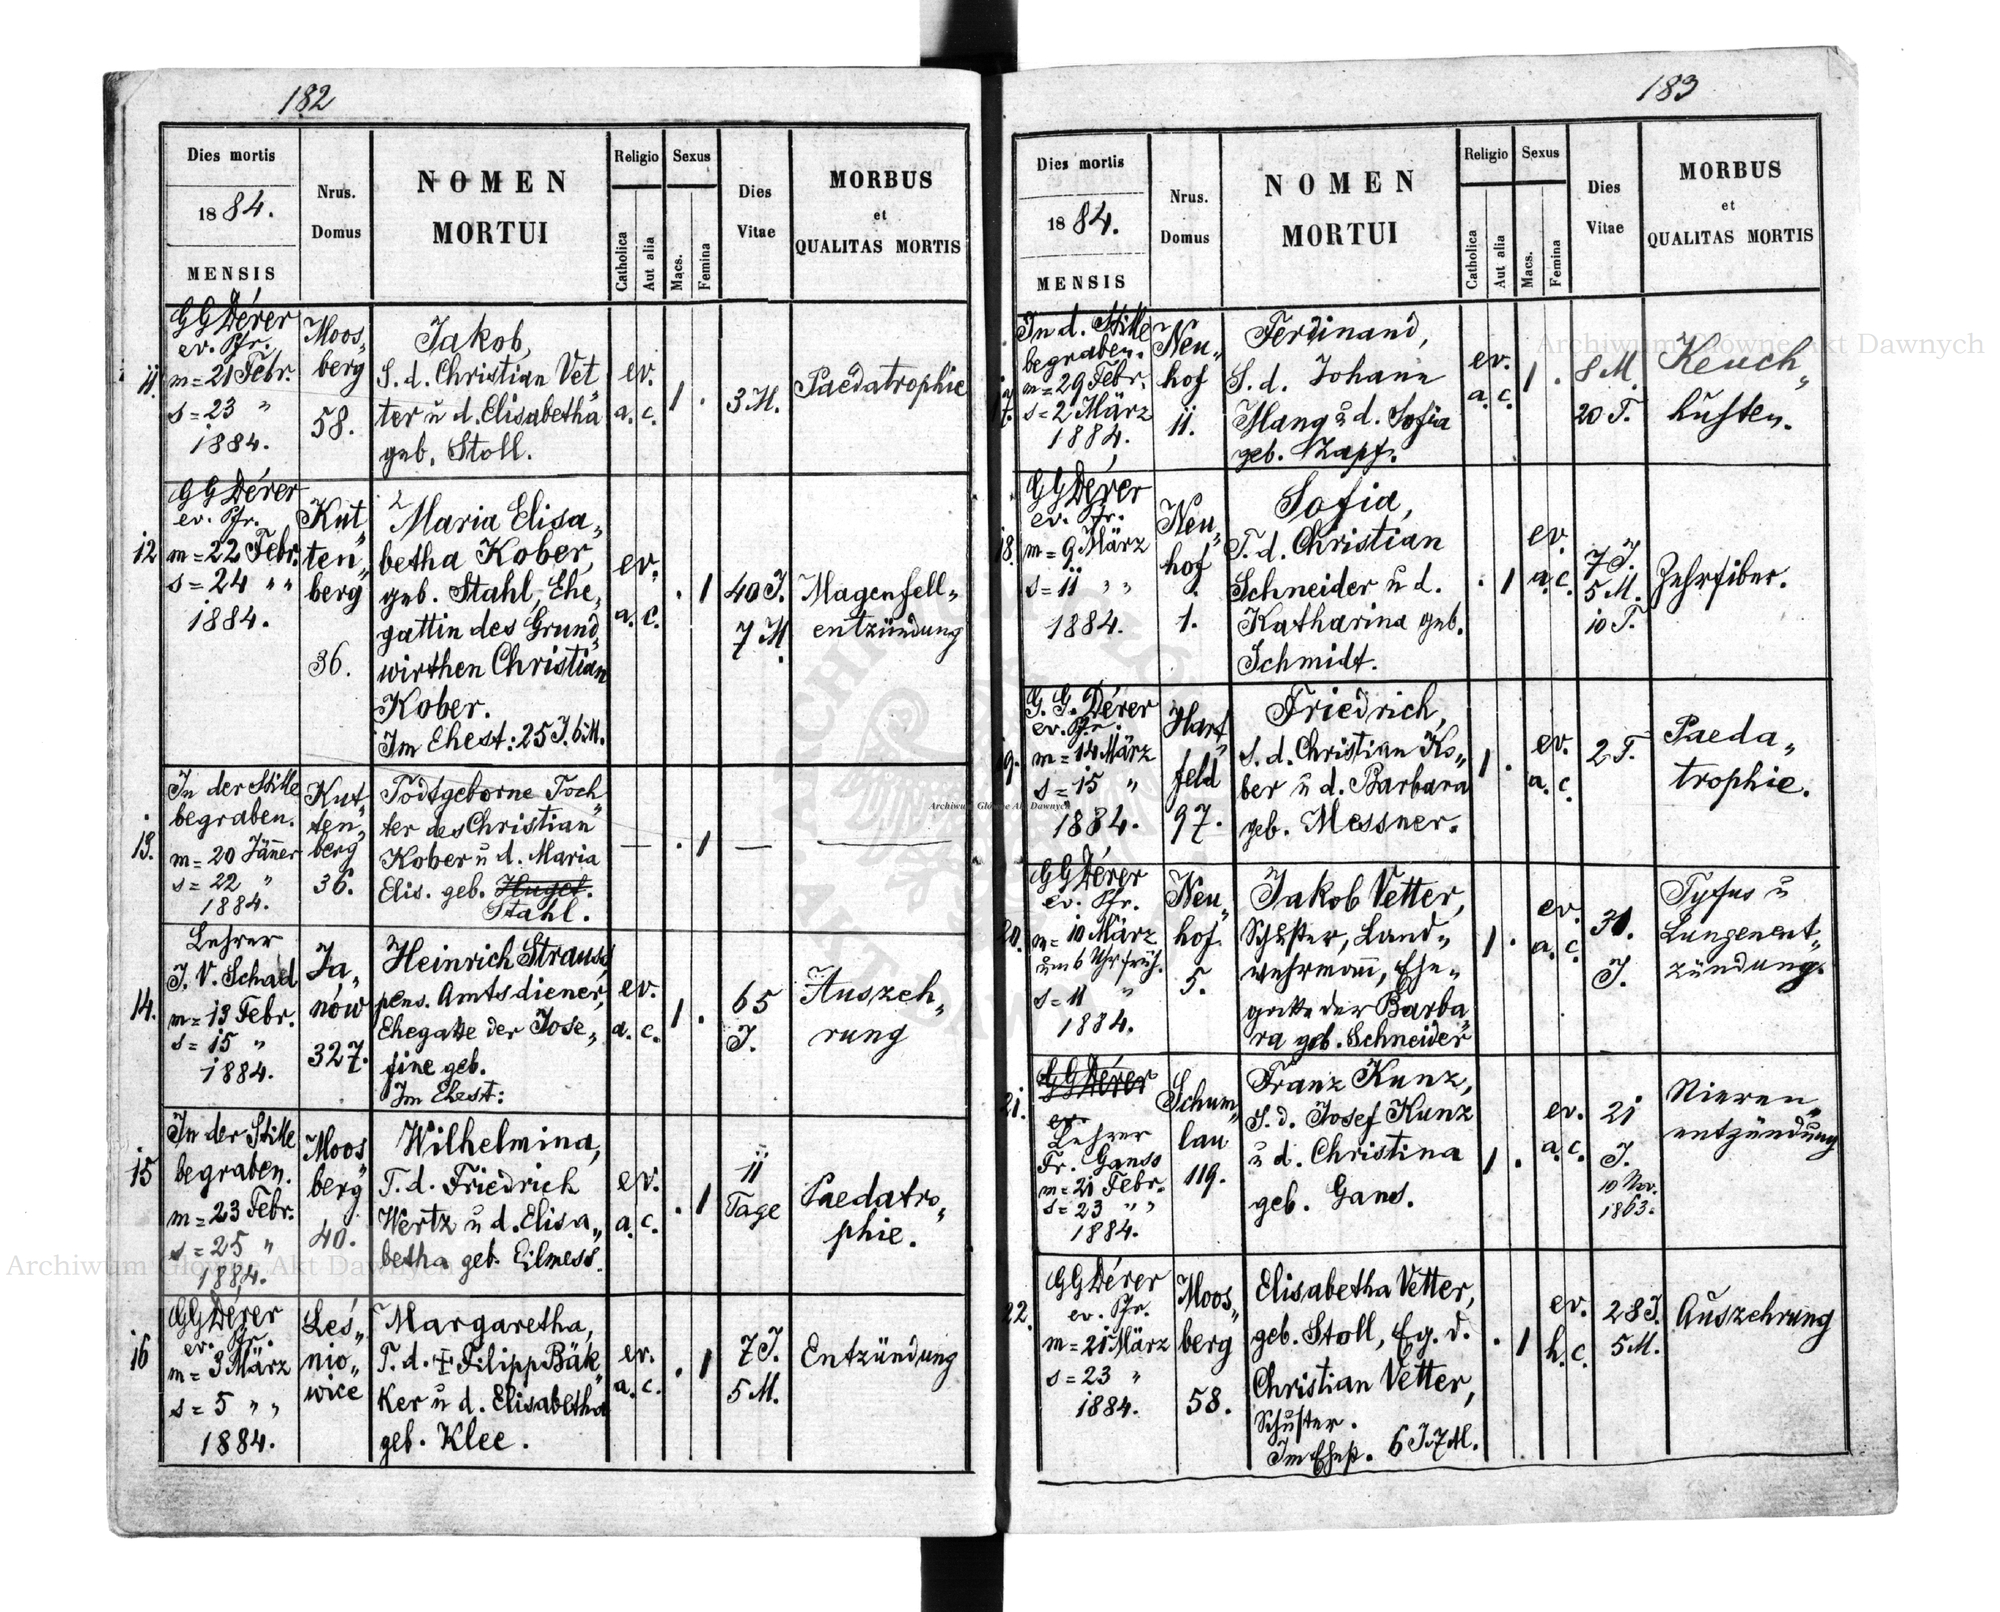 182
Dies mortis
1884.
MENSIS
Nrus.
Domus
NOMEN
MORTUI
Religio
Catholica
Aut alia
Sexus
Macs.
Femina
Dies
Vitae
MORBUS
et
QUALITAS MORTIS
11.
GG Dérer
ev. Pfr.
m=21 Febr.
s=23 "
1884.
Moos„
berg
58.
Jakob,
S. d. Christian Vet„
ter u d. Elisabetha
geb. Stoll.
ev.
a. c.
1 .
3 M.
Paedatrophie
12
GG Dérer
ev. Pfr.
m=22 Febr.
s=24 " "
1884.
Kut„
ten„
berg
36.
Maria Elisa„
betha Kober,
geb. Stahl, Ehe„
gattin des Grund„
wirthen Christian
Kober.
Im Ehest: 25 J. 6 M.
ev.
a. c.
. 1
40 J.
7 M.
Magenfell„
entzündung
13.
In der Stille
begraben.
m=20 Jänner
s=22 "
1884.
Kut„
ten„
berg
36.
Todtgeborne Toch„
ter des Christian
Kober u d. Maria
Elis. geb. Hugel.
Stahl.
—
. 1
—
—
14.
Lehrer
J. V. Schad
m=13 Febr.
s=15 "
1884.
Ja„
nów
327.
Heinrich Strauss
pens. Amtsdiener,
Ehegatte der Jose„
fine geb.
Im Ehest:
ev.
a. c.
1 .
65
J.
Auszeh„
rung
15
In der Stille
begraben.
m=23 Febr.
s=25 "
1884.
Moos„
berg
40.
Wilhelmina,
T. d. Friedrich
Wertz u d. Elisa„
betha geb. Eilmess.
ev.
a. c.
. 1
11
Tage
Paedatro„
phie.
16
GG Dérer
ev. Pfr.
m=3 März
s=5 " "
1884.
Leś„
nio„
wice
Margaretha,
T. d. + Filipp Bäk„
ker u d. Elisabetha
geb. Klee.
ev.
a. c.
. 1
7 J.
5 M.
Entzündung
183
Dies mortis
1884.
MENSIS
Nrus.
Domus
NOMEN
MORTUI
Religio
Catholica
Aut alia
Sexus
Macs.
Femina
Dies
Vitae
MORBUS
et
QUALITAS MORTIS
17.
In d. Stille
begraben.
m=29 Febr.
s=2 März
1884.
Neu„
hof
11.
Ferdinand,
S. d. Johann
Mang u d. Sofia
geb. Zapf.
ev.
a. c.
1 .
8 M.
20 T.
Keuch„
husten.
18.
GG Dérer
ev. Pfr.
m=9 März
s=11 " "
1884.
Neu„
hof
1.
Sofia,
T. d. Christian
Schneider u d.
Katharina geb.
Schmidt.
. 1
ev.
a. c.
7 J.
5 M.
10 T.
Zehrfiber.
19.
G. G. Dérer
ev. Pfr.
m=14 März
s=15 "
1884.
Hart„
feld
97.
Friedrich,
S. d. Christian Ko„
ber u d. Barbara
geb. Messner.
1 .
ev.
a. c.
2 T.
Paeda„
trophie.
20.
GG Dérer
ev. Pfr.
m=10 März
um 6 Uhr früh.
s=11 "
1884.
Neu„
hof.
5.
Jakob Vetter,
Schuster, Land„
wehrmann, Ehe„
gatte der Barba„
ra geb. Schneider
1 .
ev.
a. c.
31.
J.
Tyfus u
Lungenent„
zündung.
21.
GG Dérer
ev.
Lehrer
Fr. Ganss
m=21 Febr.
s=23 " "
1884.
Schum„
lau
119.
Franz Kunz,
S. d. Josef Kunz
u d. Christina
geb. Gans.
1 .
ev.
a. c.
21
J.
10 Nov.
1863.
Nieren„
entzündung
22.
GG Dérer
ev. Pfr.
m=21 März
s=23 "
1884.
Moos„
berg
58.
Elisabetha Vetter,
geb. Stoll, Eg. d.
Christian Vetter,
Schuster.
Im Ehest. 6 J. 7 M.
. 1
ev.
h. c.
28 J.
5 M.
Auszehrung
Archiwum Główne Akt Dawnych
Archiwum Główne Akt Dawnych
Archiwum Główne Akt Dawnych